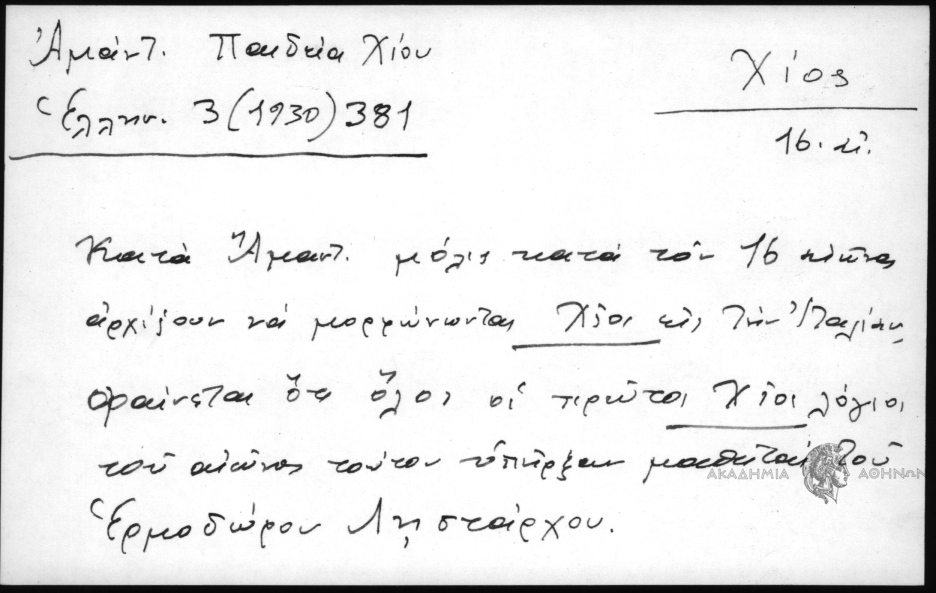 Ἀμάντ. Παιδεία Χίου
Ἑλλην. 3 (1930) 381
Χίος
16. αἰ.
Κατὰ Ἄμαντ. μόλις κατὰ τὸν 16 αἰῶνα
ἀρχίζουν νὰ μορφώνωνται Χῖοι εἰς τὴν Ἰταλίαν
φαίνεται ὅτι ὅλοι οἱ πρῶτοι Χῖοι λόγιοι
τοῦ αἰῶνος τούτου ὑπῆρξαν μαθηταὶ τοῦ
Ἑρμοδώρου Λῃστάρχου.
ΑΚΑΔΗΜΙΑ ΑΘΗΝΩΝ